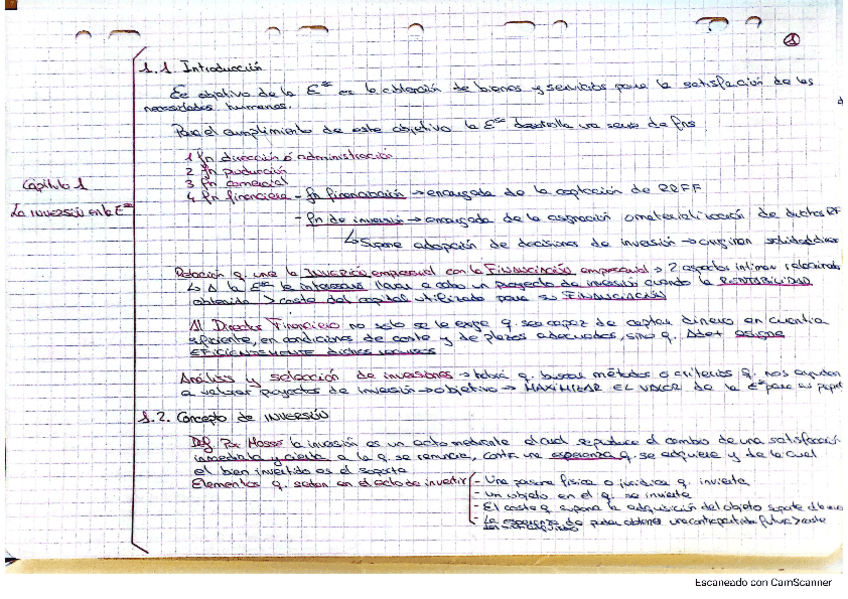 1.1. Introducción
Ee objetivo de la Eª es la obtención de bienes y servicios para la satisfacción de las
necesidades humanas.
Para el cumplimiento de este objetivo la Eª desarrolla una serie de fns
1 fn dirección ó administración
2 fn producción
3 fn comercial
4 fn financiera - fn financiación → encargada de la captación de RRFF
- fn de inversión → encargada de la asignación o materialización de dichos RF
↳ Supone adopción de decisiones de inversión →
Capítulo 1
La INVERSIÓN en la Eª
Relación q. une la INVERSIÓN empresarial con la FINANCIACIÓN empresarial → 2 aspectos íntimam relacionados
↳ A la Eª le interesará llevar a cabo un proyecto de inversión cuando la RENTABILIDAD
obtenida > coste del capital utilizado para su FINANCIACIÓN
Al Director Financiero no solo se le exige q. sea capaz de captar dinero en cuantía
suficiente, en condiciones de coste y de plazos adecuados, sino q. debe asigne
EFICIENTEMENTE dichos recursos
Análisis y selección de inversiones → habrá q. buscar métodos o criterios q. nos ayudan
a valorar proyectos de inversión → objetivo → MAXIMIZAR EL VALOR de la Eª para sus
1.2. Concepto de INVERSIÓN
Def. Por Massé la inversión es un acto mediante el cual se produce el cambio de una satisfacción
inmediata y cierta a la q. se renuncia, contra una esperanza q. se adquiere y de la cual
el bien invertido es el soporte
Elementos q. están en el acto de invertir - Una persona física o jurídica q. invierte
- Un objeto en el q. se invierte
- El coste q. supone la adquisición del objeto soporte
- La esperanza de poder obtener una contrapartida futura > coste
Escaneado con CamScanner